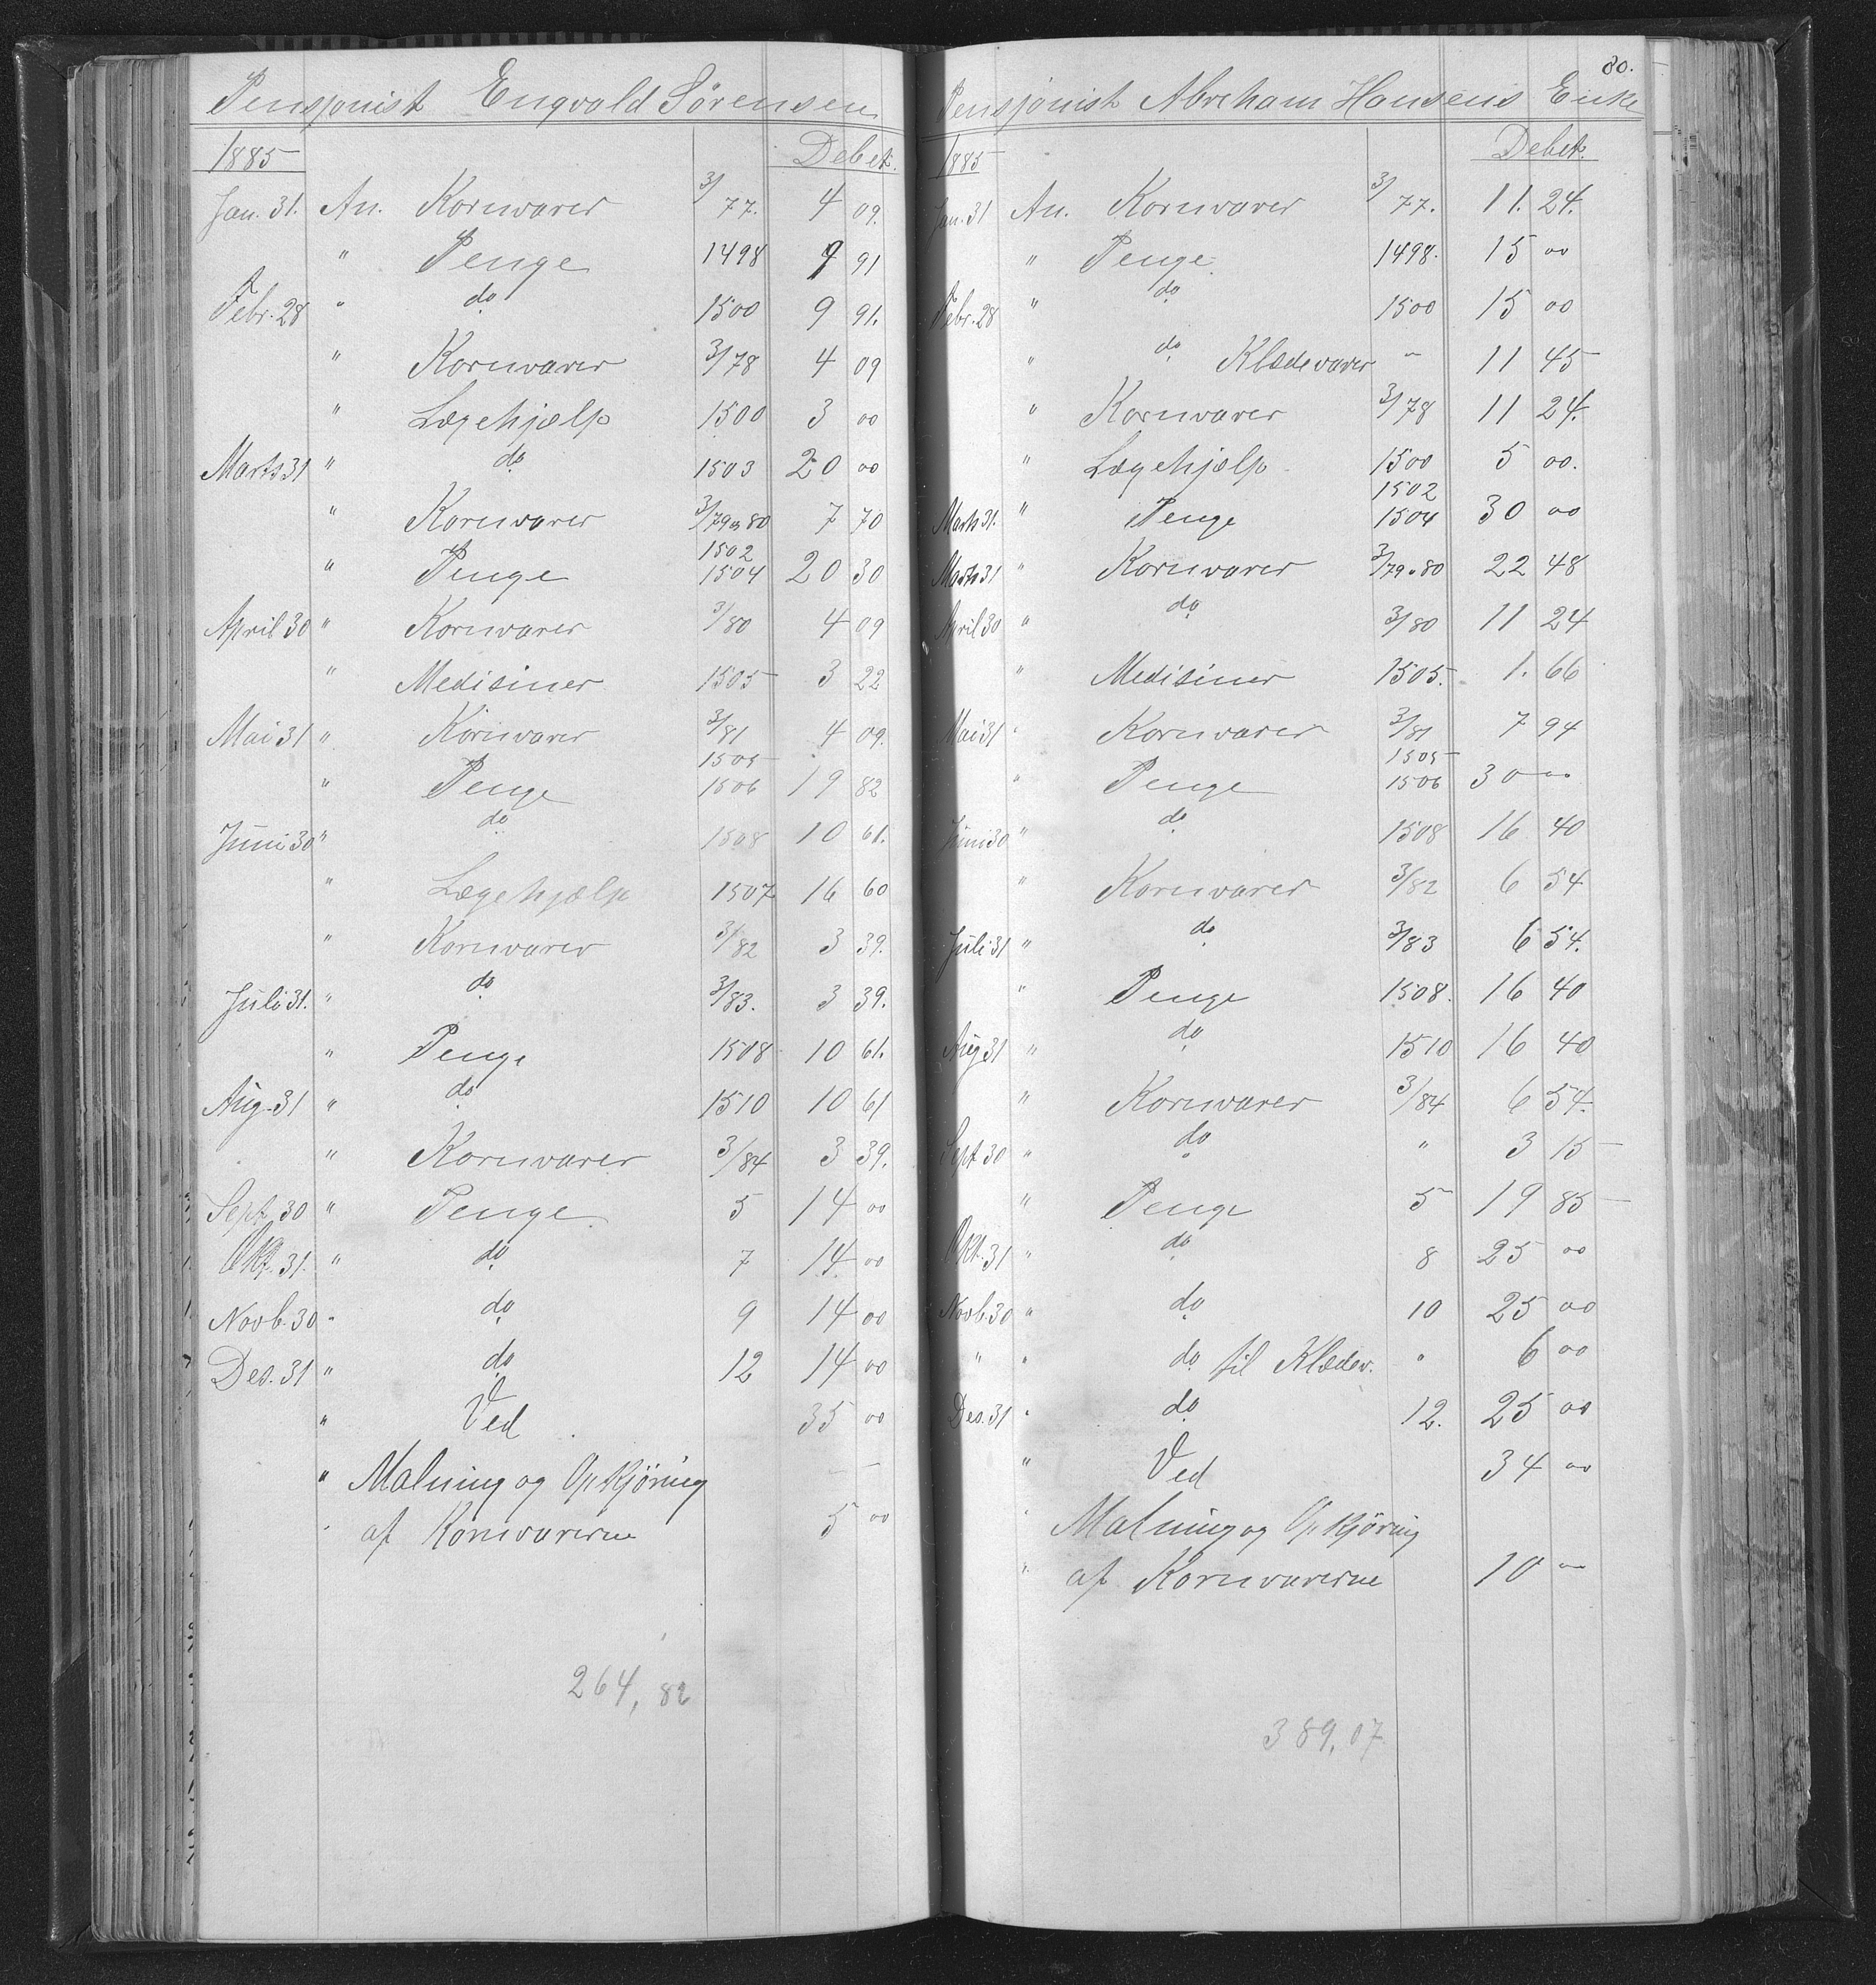 Pensjonist Engvald Sörensen
1885 Debet.
Jan. 31. An. Kornvarer 3/77. 4 09.
" Penge 1498 9 91
Febr. 28 " do 1500 9 91.
" Kornvarer 3/78 4 09
" Lægehjælp 1500 3 00
Marts 31 " do 1503 20 00
" Kornvarer 3/79 o 80 7 70
" Penge 1502 1504 20 30
April 30 " Kornvarer 3/80 4 09
" Medisiner 1505 3 22
Mai 31 " Kornvarer 3/81 4 09.
" Penge 1505 1506 19 82
Juni 30 " do 1508 10 61.
" Lægehjælp 1507 16 60
" Kornvarer 3/82 3 39.
Juli 31. " do 3/83. 3 39.
" Penge 1508 10 61.
Aug. 31 " do 1510 10 61
" Kornvarer 3/84 3 39.
Sept 30 " Penge 5 14 00
Okt. 31. " do 7 14 00
Novb. 30 " do 9 14 00
Des. 31 " do 12 14 00
" Ved 35 00
" Malning og Opkjöring
af Kornvarerne 5 00
264,82
80.
Pensjonist Abreham Hansens Enke
1885 Debet.
Jan. 31 An. Kornvarer 3/77. 11. 24.
" Penge 1498. 15 00
Febr. 28 " do 1500 15 00
" do Klædevarer " 11 45
" Kornvarer 3/78 11 24.
" Lægehjælp 1500 5 00.
Marts 31. " Penge 1502 1504 30 00
Marts 31 " Kornvarer 3/79 o 80 22 48
April 30 " do 3/80 11 24
" Medisiner 1505. 1. 66
Mai 31 " Kornvarer 3/81 7 94
" Penge 1505 1506 30 00
Juni 30 " do 1508 16 40
" Kornvarer 3/82 6 54
Juli 31 " do 3/83 6 54.
" Penge 1508. 16 40
Aug 31 " do 1510 16 40
" Kornvarer 3/84 6 54.
Sept 30 " do " 3 15
" Penge 5 19 85
Okt. 31 " do 8 25 00
Novb. 30 " do 10 25 00
" " do til Klædev. " 6 00
Des. 31 " do 12. 25 00
" Ved 34 00
" Malning og Opkjöring
" af Kornvarerne 10 00
389,07